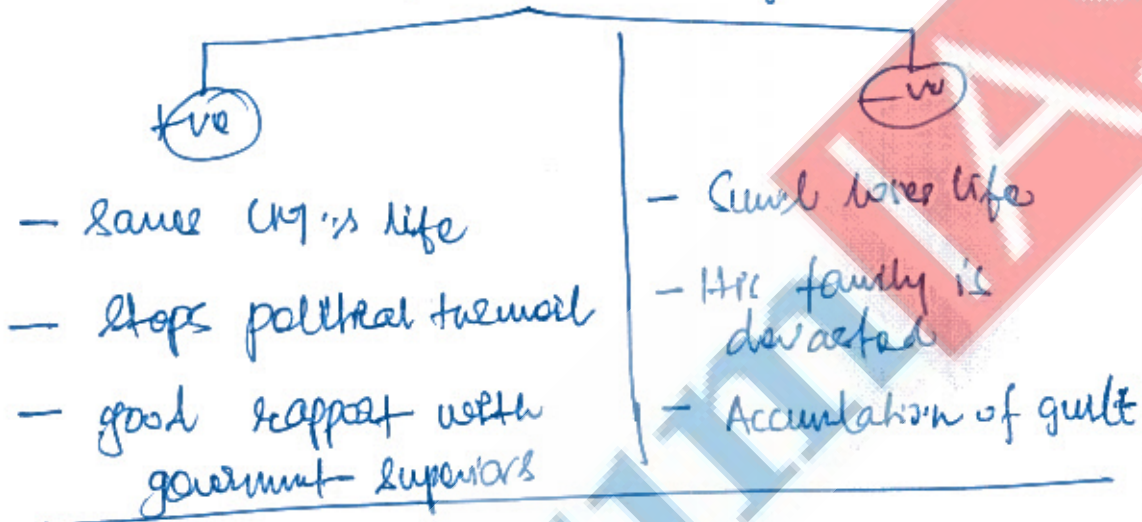 +ve
- Saves CM's life
- Stops political turmoil
- good rapport with
government superiors
-ve
- Sunil loses life
- His family is
devasted
- Accumlation of guilt